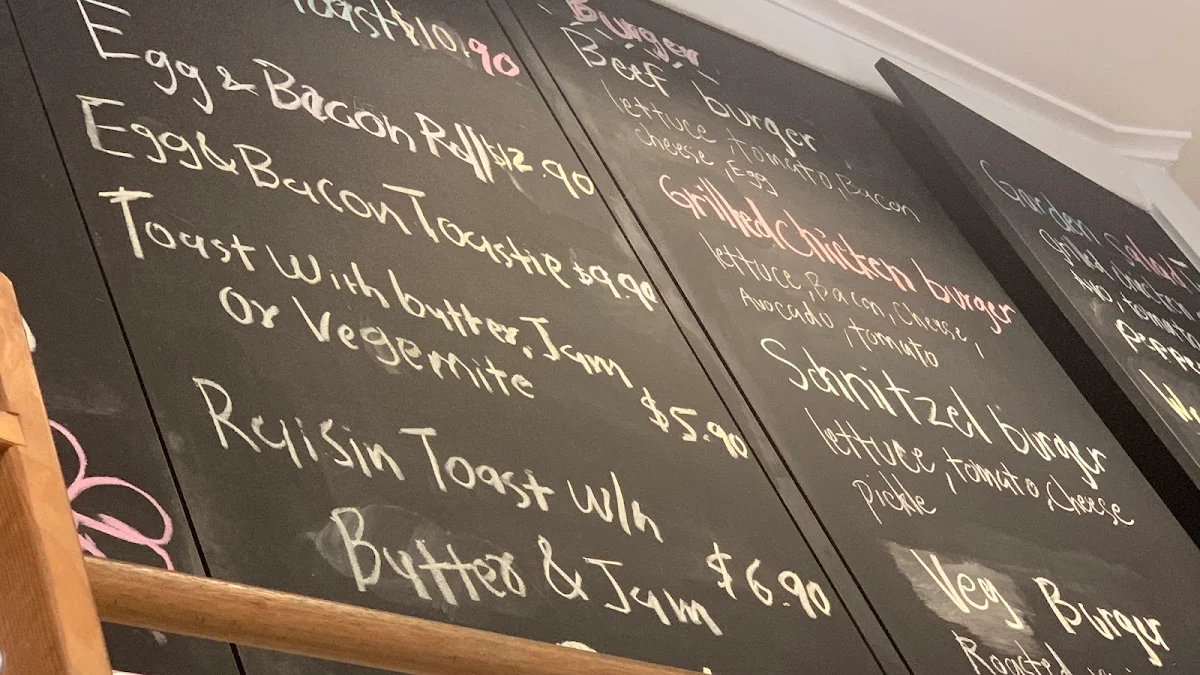 Toast $10.90
Egg & Bacon Roll $12.90
Egg & Bacon Toastie $9.90
Toast With butter, Jam
or Vegemite $5.90
Raisin Toast w/h
Butter & Jam $6.90
Burger
Beef burger
lettuce, tomato, Bacon
cheese, Egg
Grilled Chicken burger
lettuce, Bacon, Cheese,
Avocado, tomato
Schnitzel burger
lettuce, tomato, cheese
pickle
Veg Burger
Roasted
Garden Salad
Grilled chicken
Avo, tomato